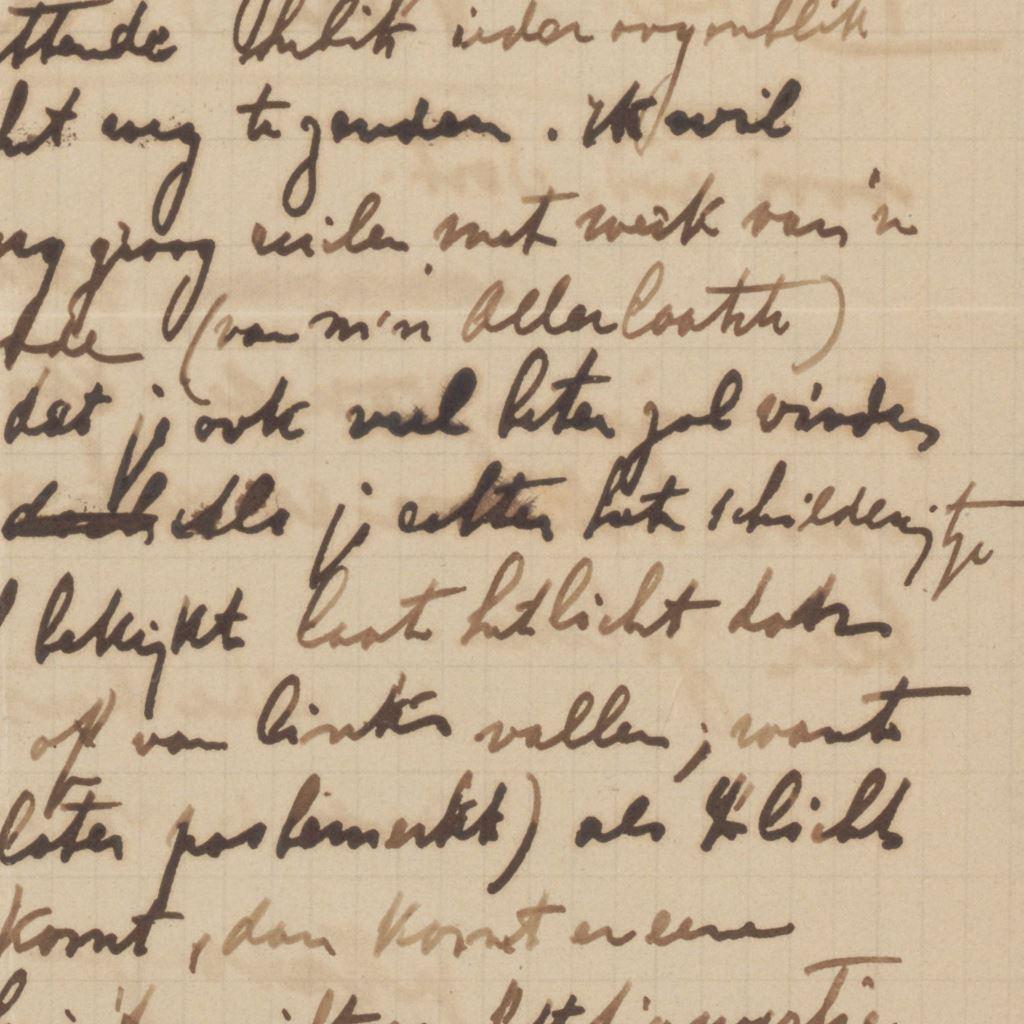 ttende Thilik ieder oogenblik
ht weg te zenden. Ik wil
graag ruilen met werk van 'n
(van m'n allerlaatste)
dat jij ook veel beter zal vinden
Als jij echter het schilderijtje
bekijkt laat het licht dan
of van links vallen; want
later pas bemerkt) als 't licht
komt, dan komt er eene